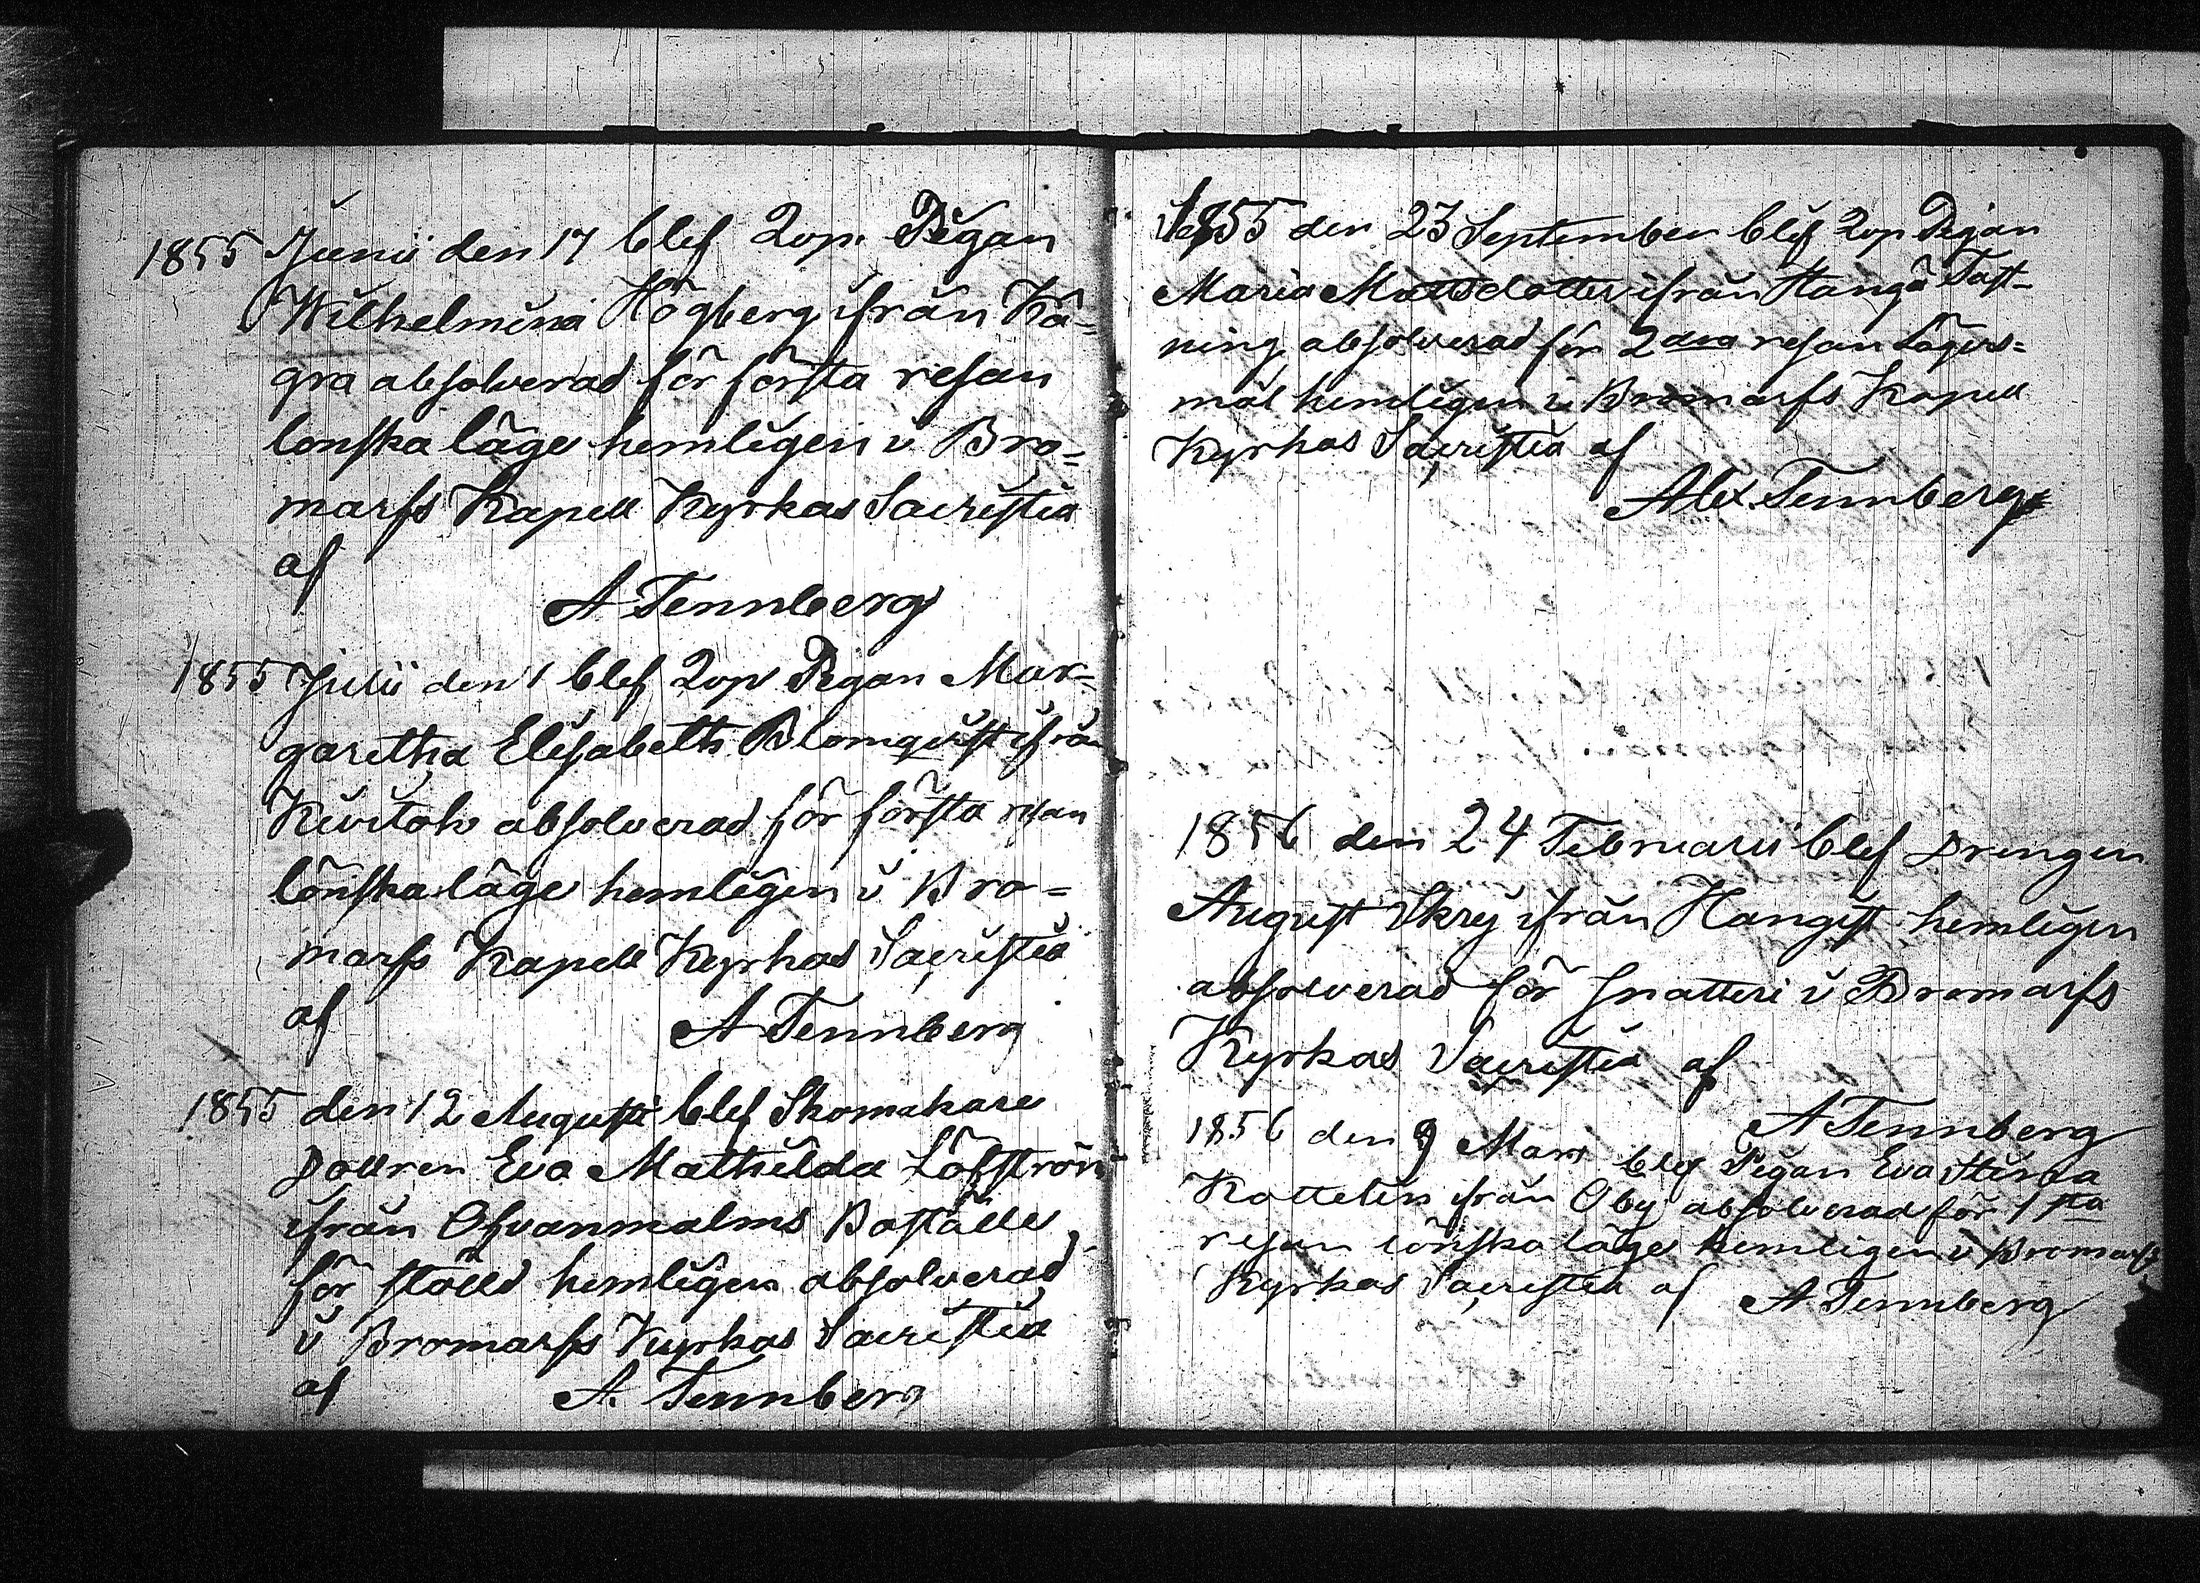 1855 Junii den 17 blef Qvp. Pigan
Wilhelmina Högberg ifrån Kå=
gra absolverad för första resan
lönska läge hemligen i Bro=
marfs Kapell Kyrkas Sacristia
af
A Tennberg
1855 Julii den 1 blef Qvp Pigan Mar=
garetha Elisabeth Blomqvist ifrån
Kivitok absolverad för första resan
lönska läge hemligen i Bro=
marfs Kapell Kyrkas Sacristia
af
A Tennberg
1855 den 12 Augusti blef Skomakare
Dottren Eva Mathilda Löfström
ifrån Ofvanmalms Boställe
för stöld hemligen absolverad
i Bromarfs Kyrkas Sacristia
af A. Tennberg
1855 den 23 September blef Qvp Pigan
Maria Mattsdotter ifrån Hangö Fäst-
ning absolverad för 2dra resan Lägers=
mål hemligen i Bromarfs Kapell
Kyrkas Sacristia af
Alex. Tennberg
1856 den 24 Februarii blef Drengen
August Skry ifrån Hangist hemligen
absolverad för snatteri i Bromarfs
Kyrkas Sacristia af
A Tennberg
1856 den 9 Mars blef Pigan Eva Stina
Kottelin ifrån Öby absolverad för 1sta
resan lönska läge hemligen i Bromarfs
Kyrkas Sacristia af A Tennberg